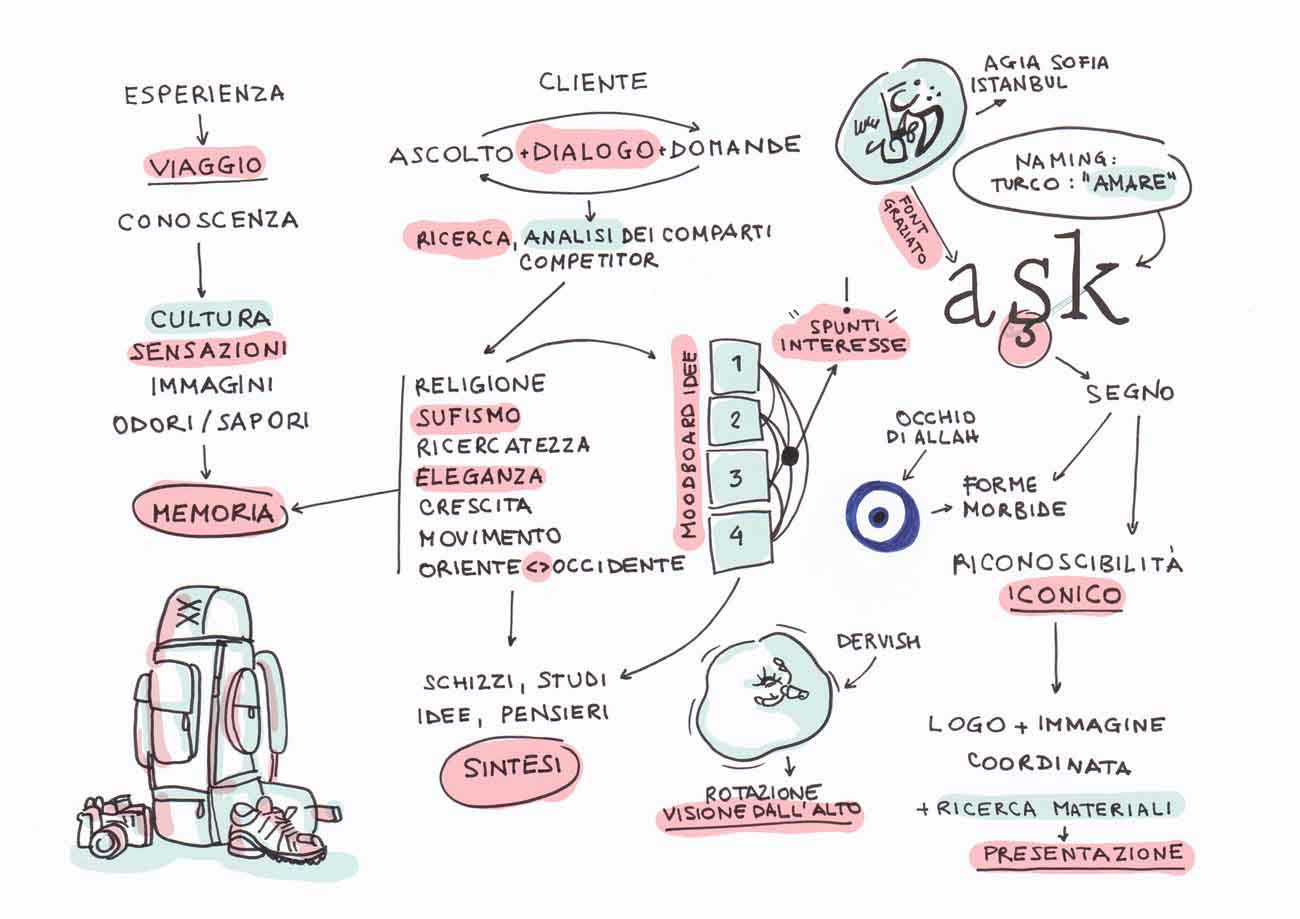 ESPERIENZA
VIAGGIO
CONOSCENZA
CULTURA
SENSAZIONI
IMMAGINI
ODORI / SAPORI
MEMORIA
CLIENTE
ASCOLTO + DIALOGO + DOMANDE
RICERCA, ANALISI DEI COMPARTI
COMPETITOR
RELIGIONE
SUFISMO
RICERCATEZZA
ELEGANZA
CRESCITA
MOVIMENTO
ORIENTE <> OCCIDENTE
SCHIZZI, STUDI
IDEE, PENSIERI
SINTESI
MOODBOARD IDEE
1
2
3
4
SPUNTI
INTERESSE
DERVISH
ROTAZIONE
VISIONE DALL'ALTO
AGIA SOFIA
ISTANBUL
NAMING:
TURCO: "AMARE"
FONT
GRAZIATO
aşk
SEGNO
OCCHIO
DI ALLAH
FORME
MORBIDE
RICONOSCIBILITÀ
ICONICO
LOGO + IMMAGINE
COORDINATA
+ RICERCA MATERIALI
PRESENTAZIONE